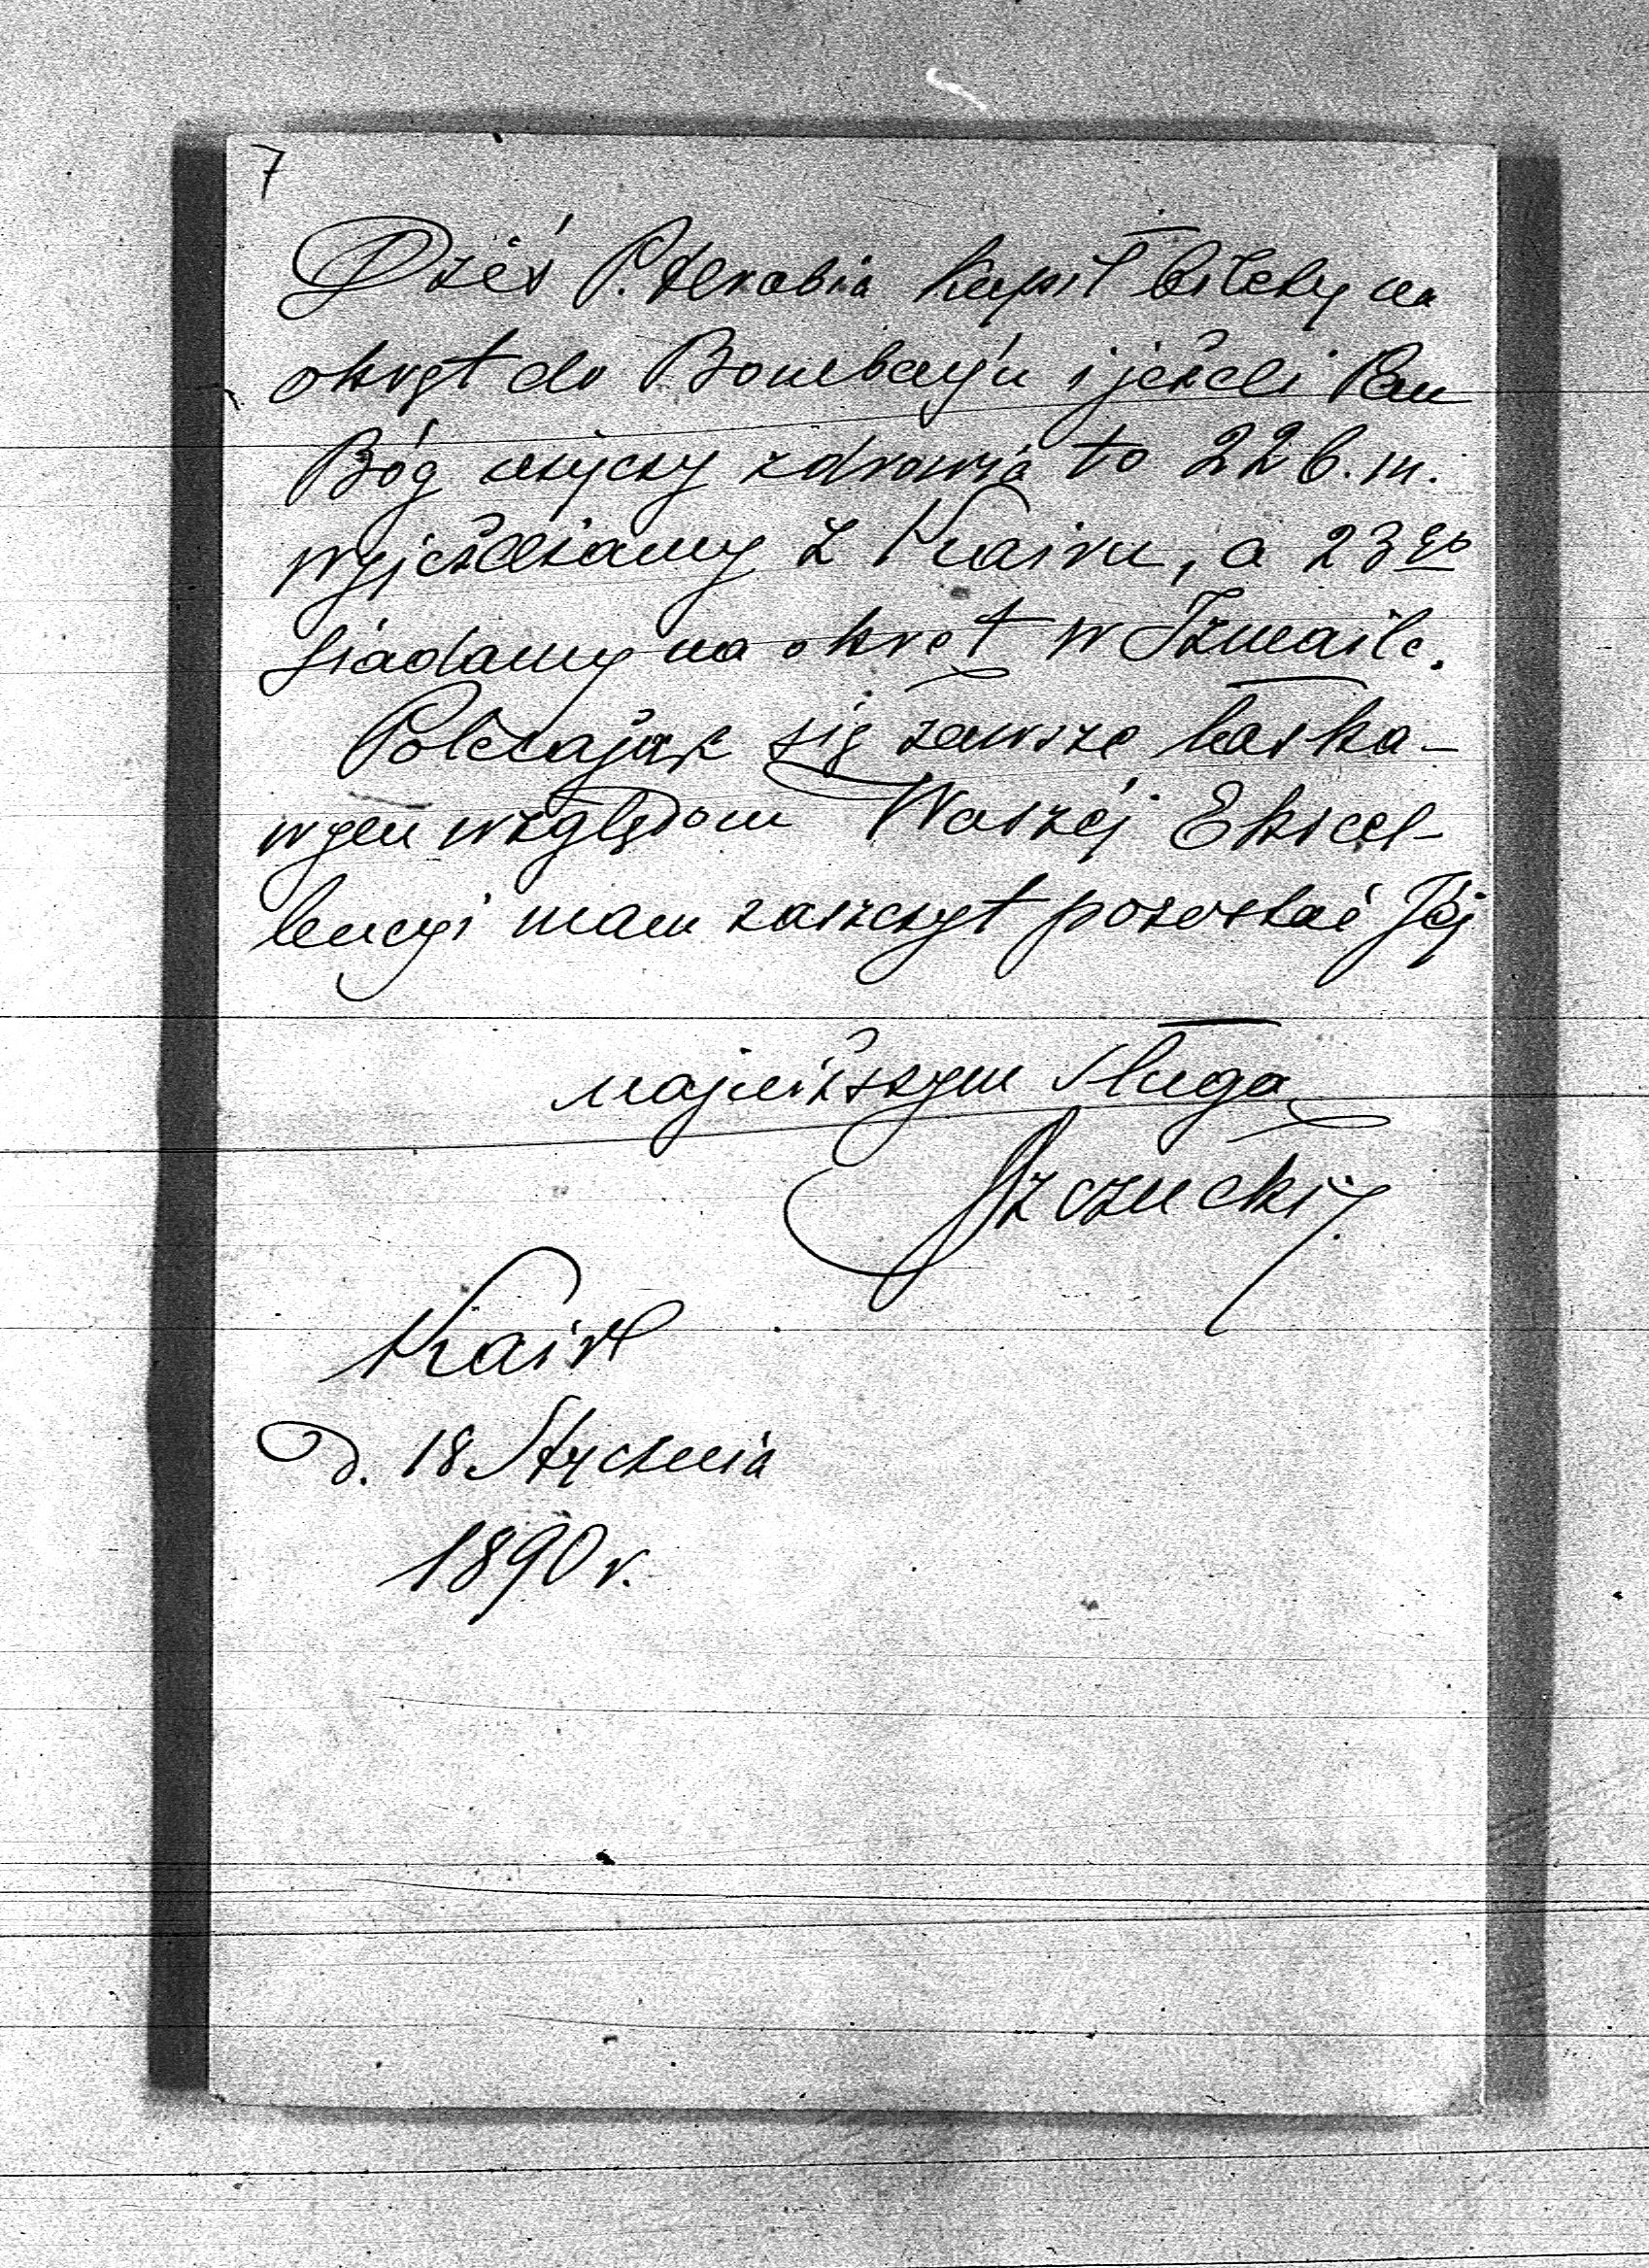 7
Dziś P. Hrabia kupił bilety na
okręt do Bombay'u i jeżeli Pan
Bóg użyczy zdrowia to 22 b. m.
wyjeżdżamy z Kairu, a 23go
siadamy na okręt w Izmaile.
Polecając się zawsze łaska-
wym względom Waszéj Ekscel-
lencyi mam zaszczyt pozostać Jéj
najniższym sługą
Szczucki.
Kair
D. 18 Stycznia
1890 r.